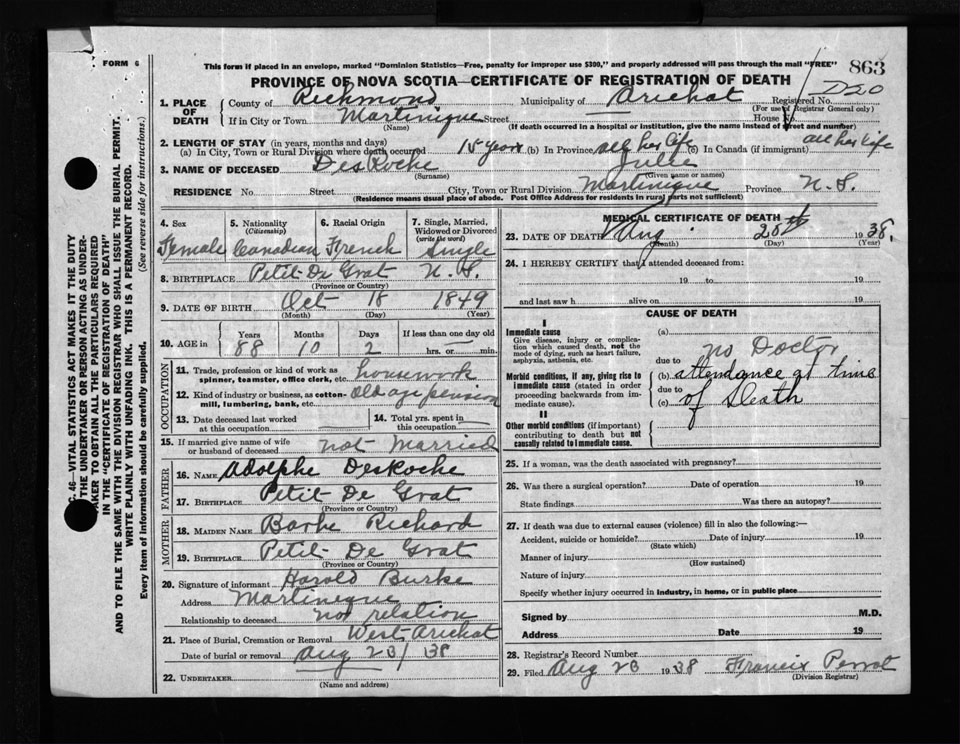 FORM 6
This form if placed in an envelope, marked "Dominion Statistics—Free, penalty for improper use $300," and properly addressed will pass through the mail "FREE"
863
PROVINCE OF NOVA SCOTIA—CERTIFICATE OF REGISTRATION OF DEATH
1. PLACE OF DEATH
County of Richmond Municipality of Arichat Registered No. D20
(For use of Registrar General only)
If in City or Town Martinique Street House No.
(Name) (If death occurred in a hospital or institution, give the name instead of street and number)
2. LENGTH OF STAY (in years, months and days)
(a) In City, Town or Rural Division where death occurred 15 years (b) In Province all her life (c) In Canada (if immigrant) all her life
3. NAME OF DECEASED DesRoche Julie
(Surname) (Given name or names)
RESIDENCE No. Street City, Town or Rural Division Martinique Province N.S.
(Residence means usual place of abode. Post Office Address for residents in rural parts not sufficient)
4. Sex Female
5. Nationality (Citizenship) Canadian
6. Racial Origin French
7. Single, Married, Widowed or Divorced (write the word) Single
8. BIRTHPLACE Petit De Grat N.S.
(Province or Country)
9. DATE OF BIRTH Oct 18 1849
(Month) (Day) (Year)
10. AGE in Years Months Days If less than one day old
88 10 2 hrs. or min.
OCCUPATION
11. Trade, profession or kind of work as spinner, teamster, office clerk, etc. housework
12. Kind of industry or business, as cotton-mill, lumbering, bank, etc. old age pension
13. Date deceased last worked at this occupation
14. Total yrs. spent in this occupation
15. If married give name of wife or husband of deceased not Married
FATHER
16. Name Adolphe DesRoche
17. Birthplace Petit De Grat
(Province or Country)
MOTHER
18. Maiden Name Barbe Richard
19. Birthplace Petit De Grat
(Province or Country)
20. Signature of informant Harold Burke
Address Martineque
Relationship to deceased no relation
21. Place of Burial, Cremation or Removal West Arichat
Date of burial or removal Aug 23/38
22. Undertaker
(Name and address)
MEDICAL CERTIFICATE OF DEATH
23. DATE OF DEATH Aug 20th 1938.
(Month) (Day) (Year)
24. I HEREBY CERTIFY that I attended deceased from:
19 to 19
and last saw h alive on 19
CAUSE OF DEATH
I
Immediate cause
Give disease, injury or complication which caused death, not the mode of dying, such as heart failure, asphyxia, asthenia, etc.
Morbid conditions, if any, giving rise to immediate cause (stated in order proceeding backwards from immediate cause).
II
Other morbid conditions (if important) contributing to death but not causally related to immediate cause.
(a)
due to no Doctor
(b) attendance at time
due to
(c) of Death
25. If a woman, was the death associated with pregnancy?
26. Was there a surgical operation? Date of operation 19
State findings Was there an autopsy?
27. If death was due to external causes (violence) fill in also the following:—
Accident, suicide or homicide? Date of injury 19
(State which)
Manner of injury
(How sustained)
Nature of injury
Specify whether injury occurred in industry, in home, or in public place
Signed by M.D.
Address Date 19
28. Registrar's Record Number
29. Filed Aug 23 1938 Francis Perrot
(Division Registrar)
C. 46—VITAL STATISTICS ACT MAKES IT THE DUTY
THE UNDERTAKER OR PERSON ACTING AS UNDER-
TAKER TO OBTAIN ALL THE PARTICULARS REQUIRED
IN THE "CERTIFICATE OF REGISTRATION OF DEATH"
AND TO FILE THE SAME WITH THE DIVISION REGISTRAR WHO SHALL ISSUE THE BURIAL PERMIT.
WRITE PLAINLY WITH UNFADING INK. THIS IS A PERMANENT RECORD.
Every item of Information should be carefully supplied. (See reverse side for instructions.)